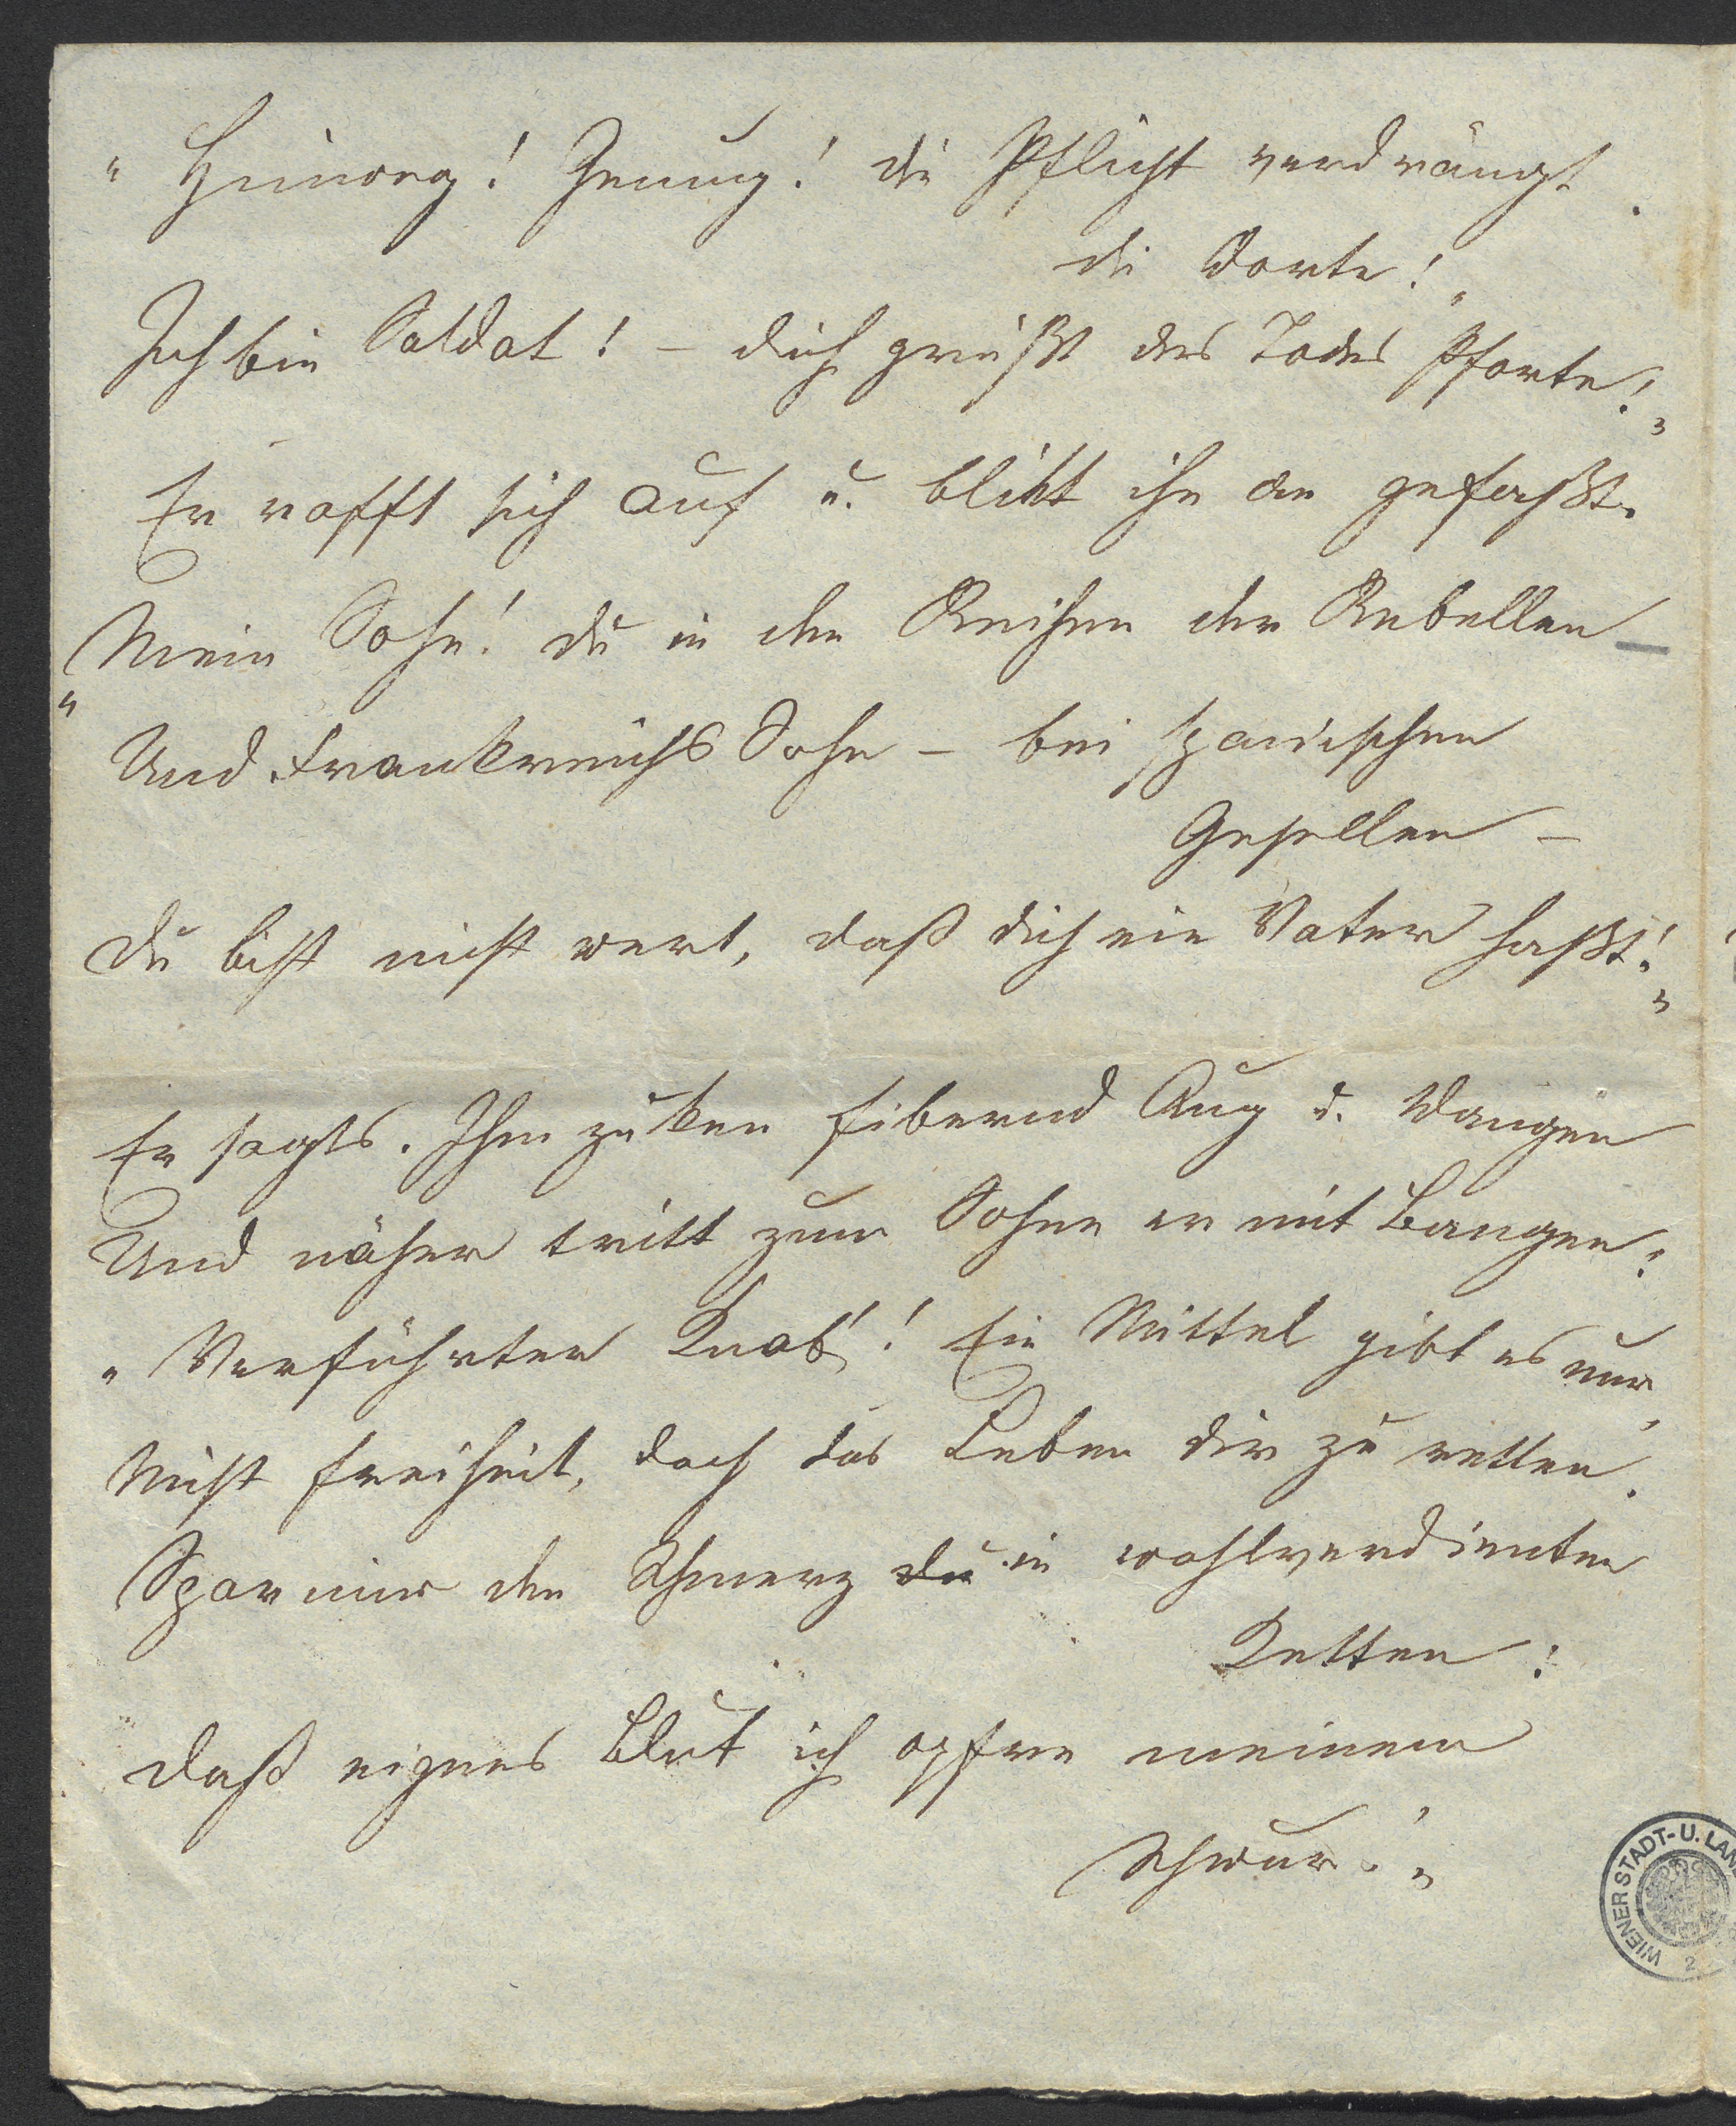 "Hinweg! Genug! die Pflicht verdrängt
die Worte!
Ich bin Soldat! – dich grüßt des Todes Pforte!"
Er rafft sich auf u. blikt ihn an gefaßt.
"Mein Sohn! du in den Reihen der Rebellen –
Und Frankreichs Sohn – bei spanischen
Gesellen –
Du bist nicht wert, daß dich ein Vater haßt!"
Er sagts. Ihm zuken fibernd Aug u. Wangen
Und näher tritt zum Sohne er mit Bangen:
"Verführter Knab'! Ein Mittel gibt es nur,
Nicht Freiheit, doch das Leben dir zu retten.
Spar mir den Schmerz du in wohlverdienten
Ketten:
Daß eignes Blut ich opfre meinem
Schwur!"
WIENER STADT- U. LAN
2